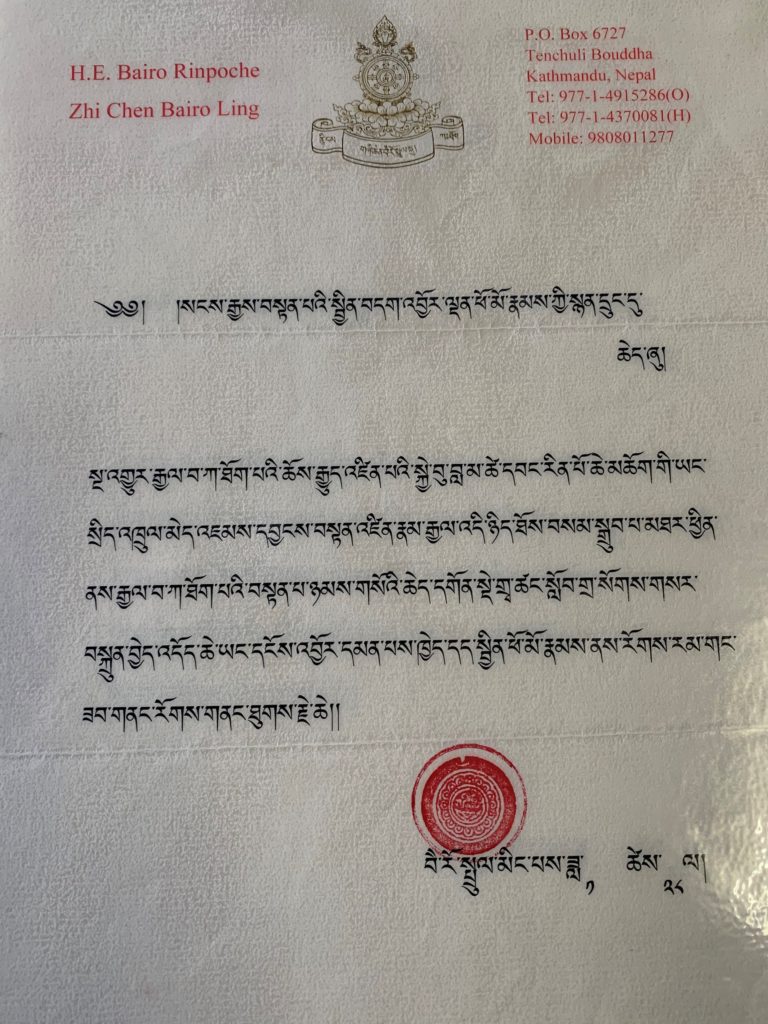 H.E. Bairo Rinpoche
Zhi Chen Bairo Ling
P.O. Box 6727
Tenchuli Bouddha
Kathmandu, Nepal
Tel: 977-1-4915286(O)
Tel: 977-1-4370081(H)
Mobile: 9808011277
༄༅། །སངས་རྒྱས་བསྟན་པའི་སྦྱིན་བདག་འབྱོར་ལྡན་ཕོ་མོ་རྣམས་ཀྱི་སྙན་དྲུང་དུ་
ཆེད་ཞུ།
སྔ་འགྱུར་རྒྱལ་བ་ཀ་ཐོག་པའི་ཆོས་རྒྱུད་འཛིན་པའི་སྐྱེ་བུ་བླ་མ་ཚེ་དབང་རིན་པོ་ཆེ་མཆོག་གི་ཡང་
སྲིད་འཁྲུལ་མེད་འཇམས་དབྱངས་བསྟན་འཛིན་རྣམ་རྒྱལ་འདི་ཉིད་ཐོས་བསམ་སྒྲུབ་པ་མཐར་ཕྱིན་
ནས་རྒྱལ་བ་ཀ་ཐོག་པའི་བསྟན་པ་ཉམས་གསོའི་ཆེད་དགོན་སྡེ་གྲྭ་ཚང་སློབ་གྲ་སོགས་གསར་
བསྐྲུན་བྱེད་འདོད་ཆེ་ཡང་དངོས་འབྱོར་དམན་པས་ཁྱེད་དད་སྦྱིན་ཕོ་མོ་རྣམས་ནས་རོགས་རམ་གང་
ཟབ་གནང་རོགས་གནང་ཐུགས་རྗེ་ཆེ།།
བཻ་རོ་སྤྲུལ་མིང་པས་ཟླ་༡ ཚེས་༢༨ ལ།